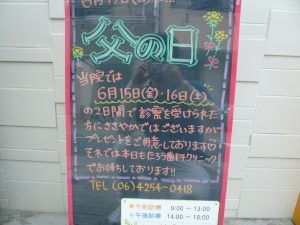 父の日
当院では
6月15日(金)・16日(土)
の2日間で診察を受けられた
方にささやかではございますが
プレゼントをご用意しております♡
それでは本日もたろう歯科クリニック
でお待ちしております!!
TEL (06)4254-0418
午前診療 9:00～13:00
午後診療 14:00～18:00